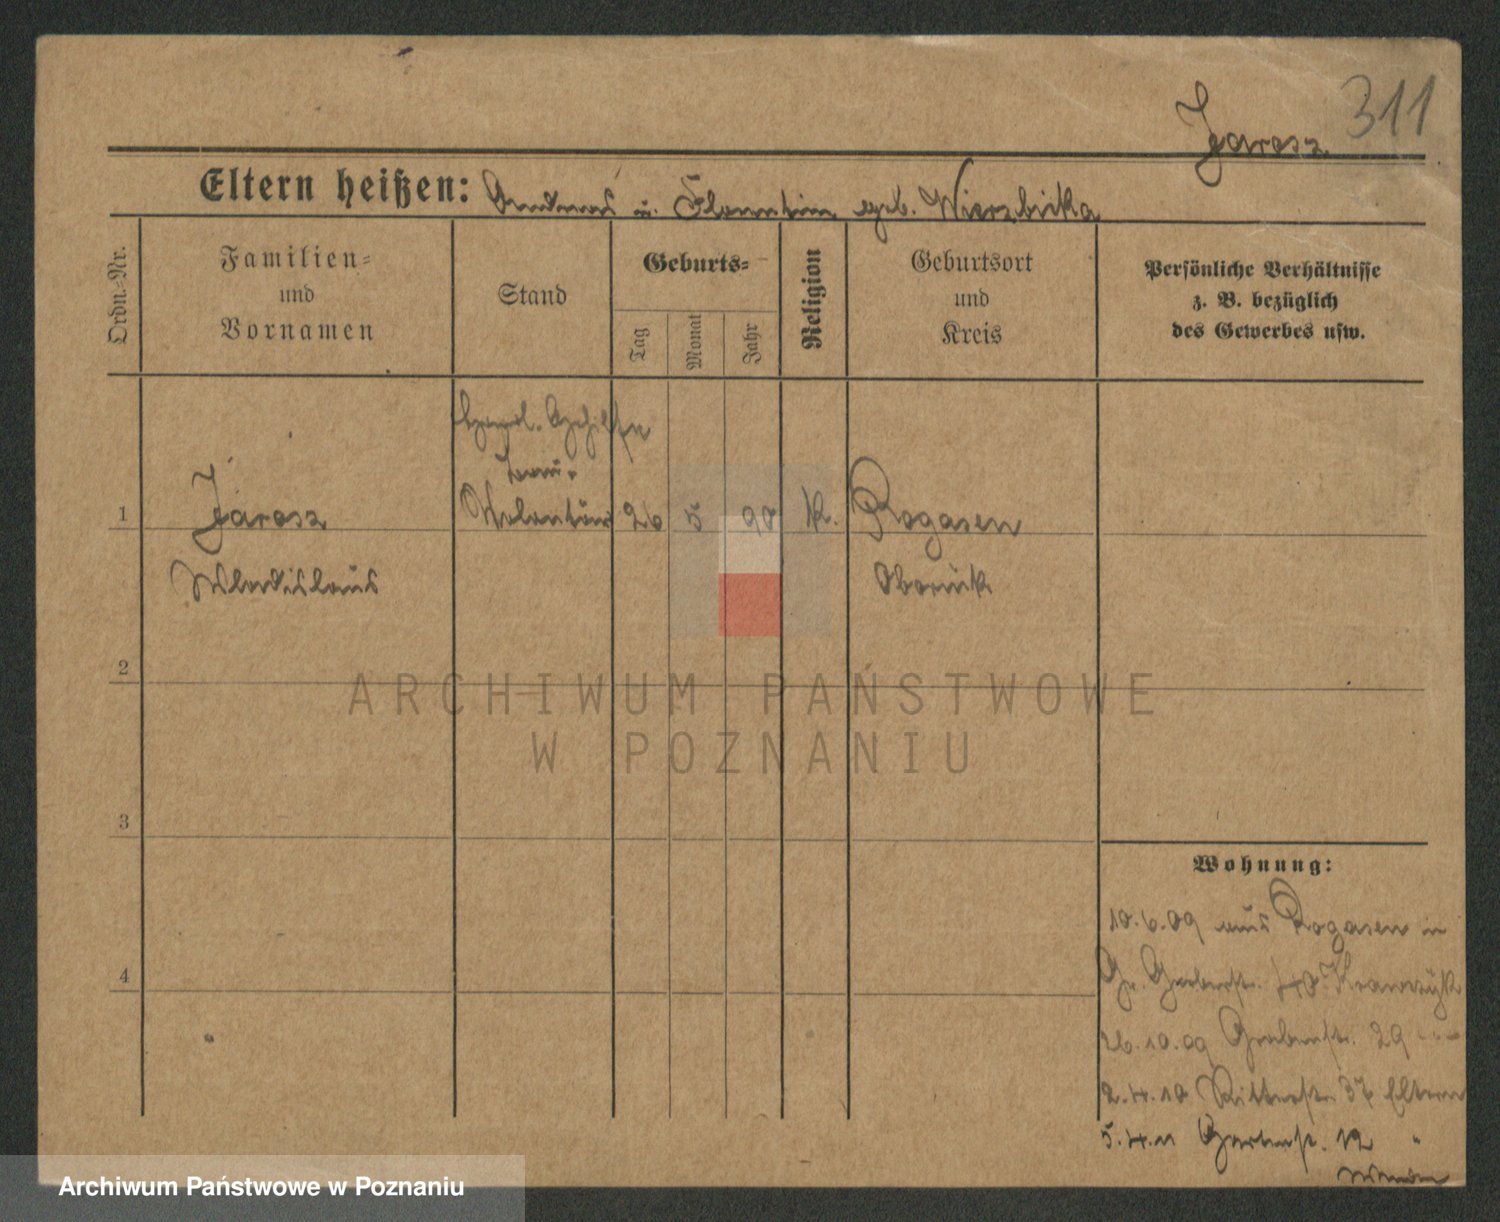 311
Jarosz
Eltern heißen: Andreas u. Florentine geb. Wierzbicka
Ordn.=Nr.
Familien=
und
Vornamen
Stand
Geburts=
Tag
Monat
Jahr
Religion
Geburtsort
und
Kreis
Persönliche Verhältnisse
z. B. bezüglich
des Gewerbes usw.
Handl. Gehilfe
1 Jarosz Volontär 26 5 90 K. Rogasen
Wladislaus Obornik
2
3
4
Wohnung:
10.6.09 aus Rogasen in
Gr. Gerberstr. 40 Krawczyk
26.10.09 Grabenstr. 29
2.4.10 Ritterstr. 37 Eltern
5.4.11 Gartenstr. 12 "
ARCHIWUM PAŃSTWOWE
W POZNANIU
Archiwum Państwowe w Poznaniu